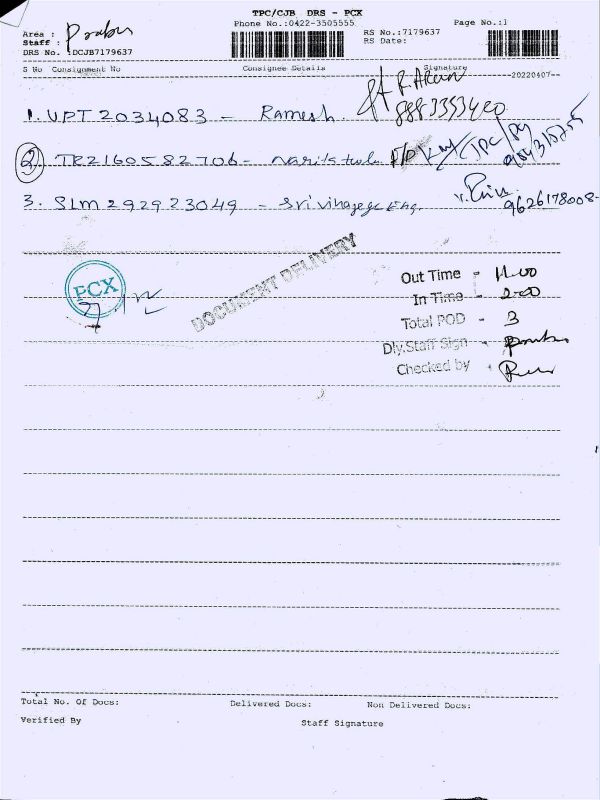 TPC/CJB DRS - PCX
Phone No.:0422-3505555
Page No.:1
Area :
Staff : Prabu
DRS No. :DCJB7179637
RS No.:7179637
RS Date:
S No Consignment No Consignee Details Signature
--20220407--
1. VPT2034083 - Ramesh. R. Arun
2) TRZ160582706-
3. SLM292923049 - Sri Vinayaga Eng.
9626178008-
PCX
DOCUMENT DELIVERY
Out Time - 11.00
In Time - 2.00
Total POD - 3
Dly.Staff Sign - Prabu
Checked by -
Total No. Of Docs: Delivered Docs: Non Delivered Docs:
Verified By Staff Signature